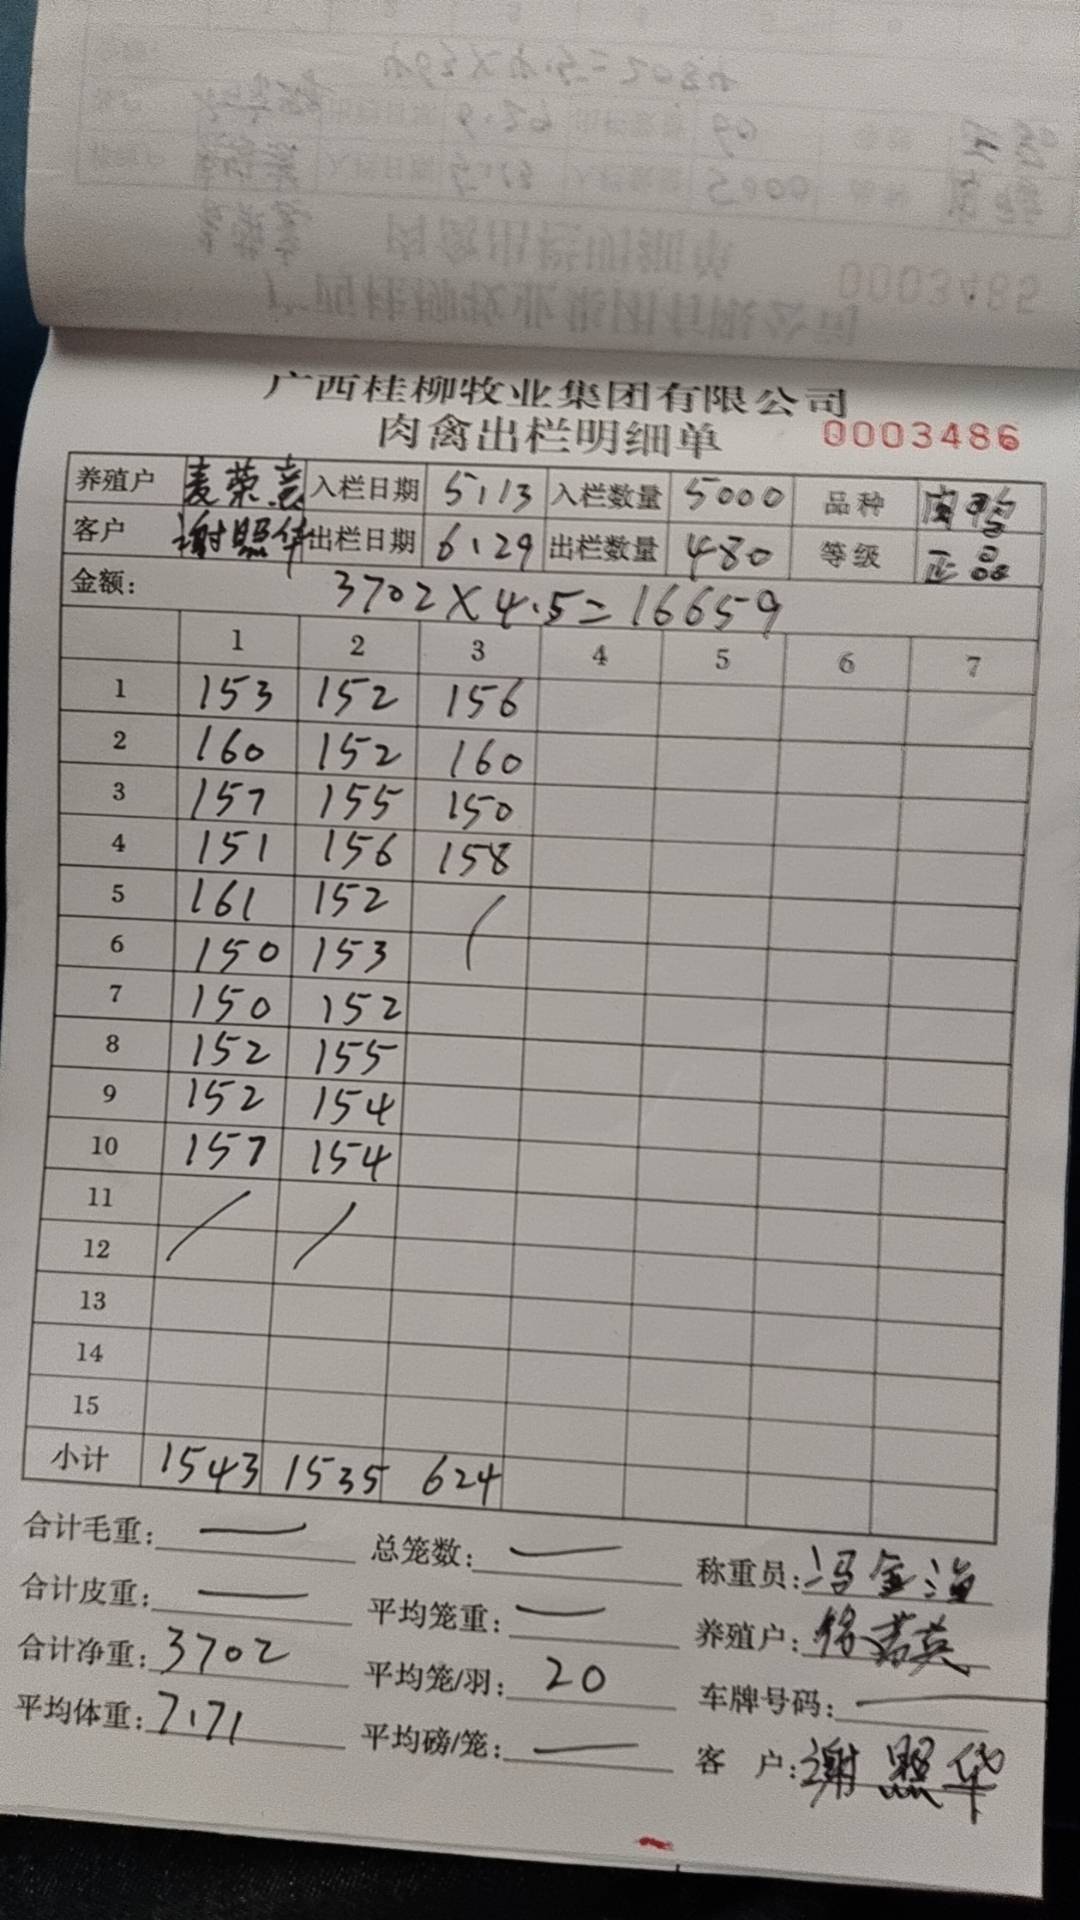 广西桂柳牧业集团有限公司
肉禽出栏明细单 0003486
养殖户 麦荣意 入栏日期 5.13 入栏数量 5000 品种
客户 谢照华 出栏日期 6.29 出栏数量 480 等级 正品
金额: 3702×4.5=16659
1 2 3 4 5 6 7
1 153 152 156
2 160 152 160
3 157 155 150
4 151 156 158
5 161 152 /
6 150 153
7 150 152
8 152 155
9 152 154
10 157 154
11 / /
12
13
14
15
小计 1543 1535 624
合计毛重: — 总笼数: — 称重员: 冯金海
合计皮重: — 平均笼重: — 养殖户:
合计净重: 3702 平均笼/羽: 20 车牌号码: —
平均体重: 7.71 平均磅/笼: — 客 户: 谢照华